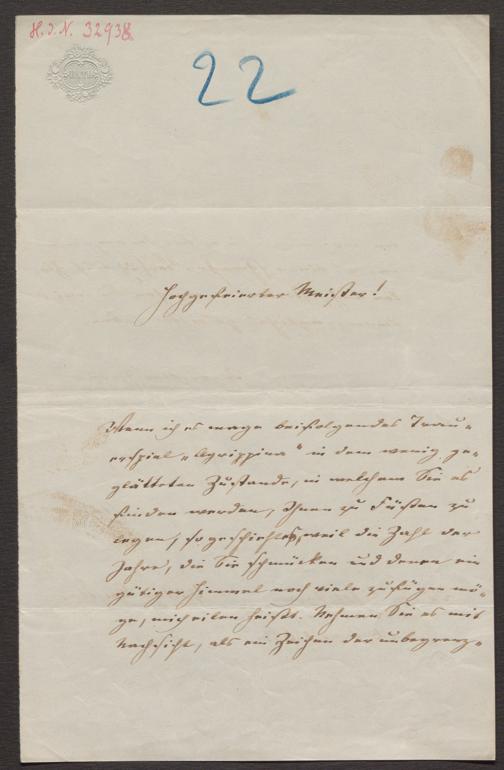 H. I. N. 32938
BATH
22
Hochgefeierter Meister!
Wenn ich es wage beifolgendes Trau-
erspiel „Agrippina“ in dem wenig ge-
glätteten Zustande, in welchem Sie es
finden werden, Ihnen zu Füßen zu
legen, so geschieht es, weil die Zahl der
Jahre, die Sie schmücken und denen ein
gütiger Himmel noch viele zufügen mö-
ge, mich eilen heißt. Nehmen Sie es mit
Nachsicht, als ein Zeichen der unbegrenz-